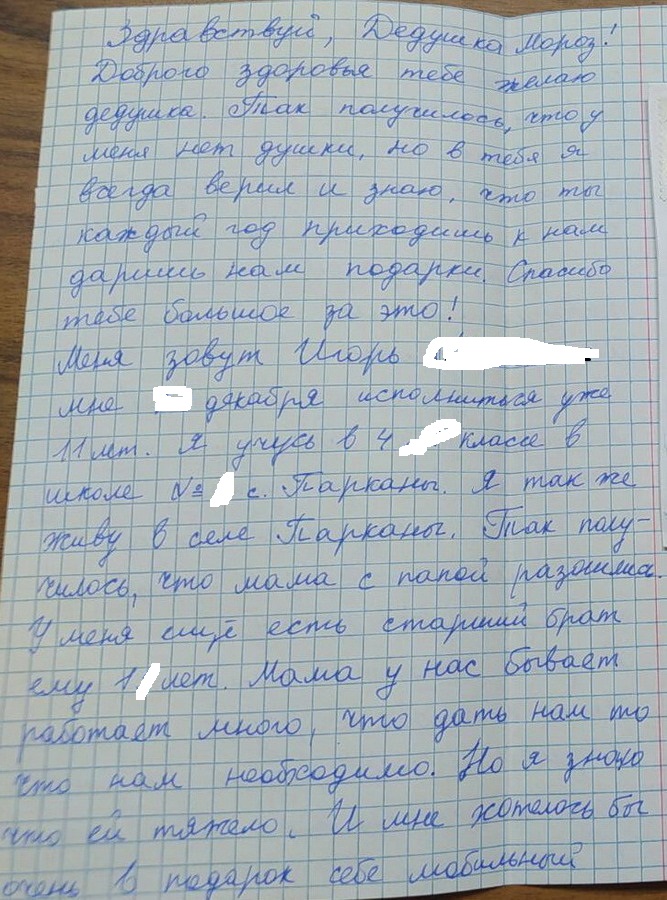 Здравствуй, Дедушка Мороз!
Доброго здоровья тебе желаю
дедушка. Так получилось, что у
меня нет душки, но в тебя я
всегда верил и знаю, что ты
каждый год приходишь к нам
даришь нам подарки. Спасибо
тебе большое за это!
Меня зовут Игорь
мне дякабря исполниться уже
11 лет. Я учусь в 4 классе в
школе № с. Парканы. Я так же
живу в селе Парканы. Так полу-
чилось, что мама с папой разошлись.
У меня ещё есть старший брат
ему 1 лет. Мама у нас бывает
работает много, что дать нам то
что нам необходимо. Но я знаю
что ей тяжело. И мне хотелось бы
очень в подарок себе мобильный